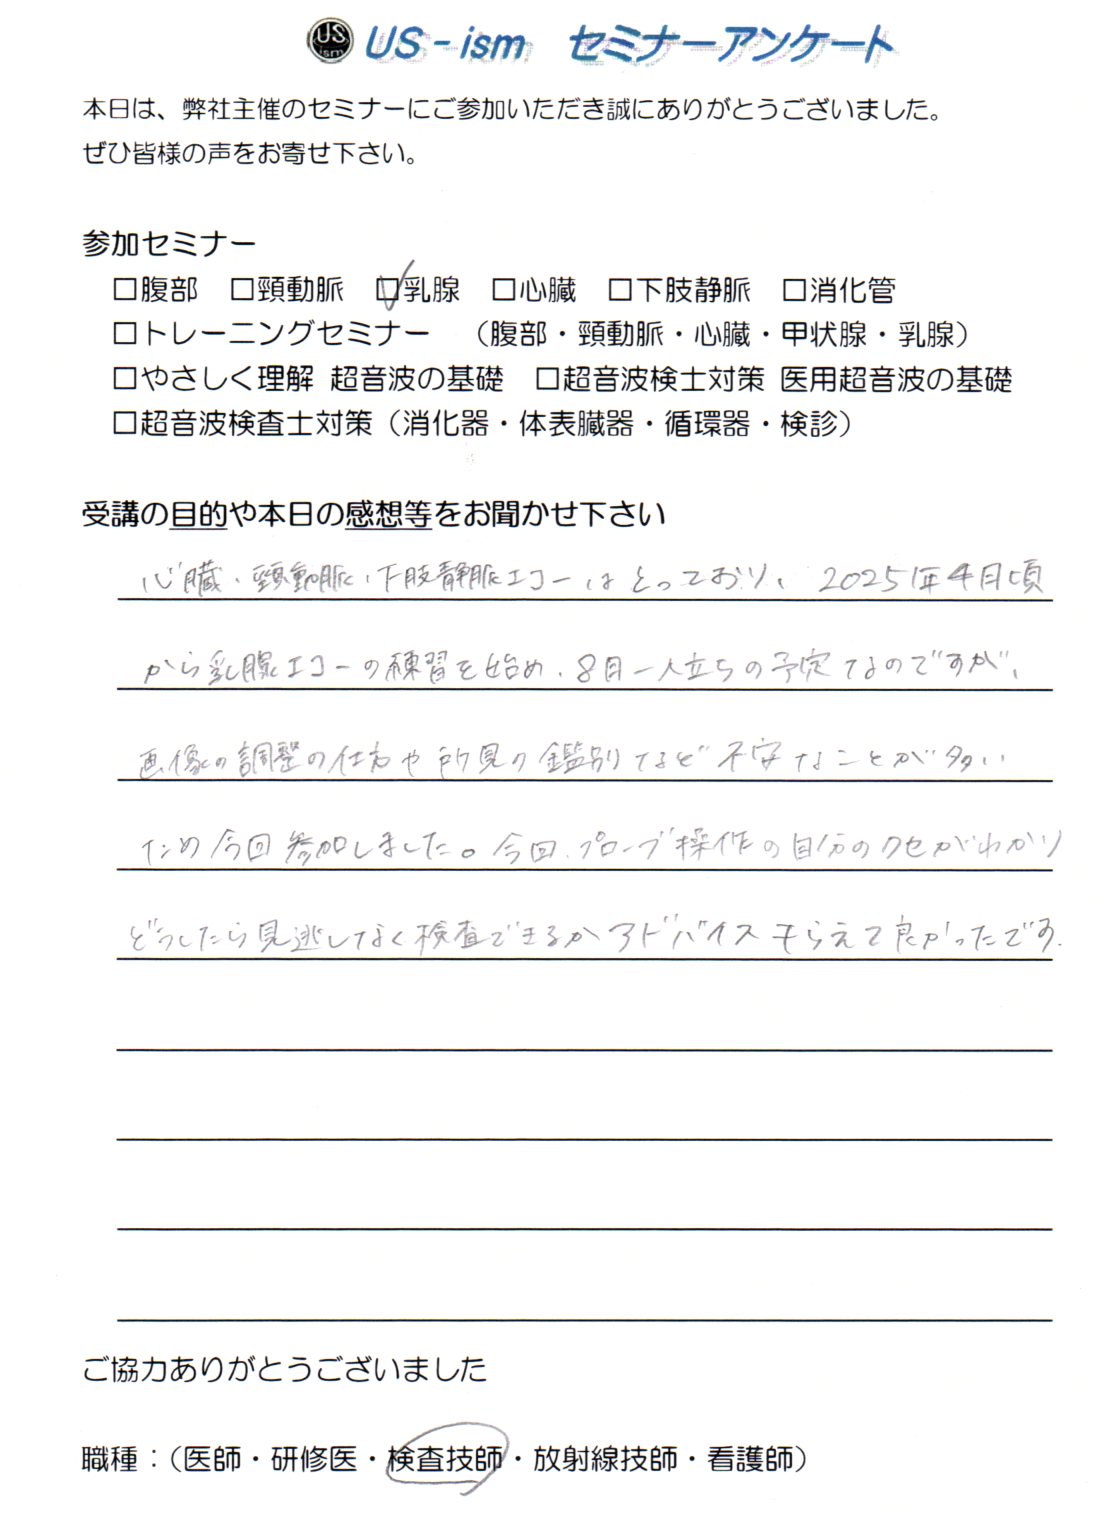 US ism US-ism セミナーアンケート
本日は、弊社主催のセミナーにご参加いただき誠にありがとうございました。
ぜひ皆様の声をお寄せ下さい。
参加セミナー
□腹部 □頸動脈 ☑乳腺 □心臓 □下肢静脈 □消化管
□トレーニングセミナー （腹部・頸動脈・心臓・甲状腺・乳腺）
□やさしく理解 超音波の基礎 □超音波検士対策 医用超音波の基礎
□超音波検査士対策（消化器・体表臓器・循環器・検診）
受講の目的や本日の感想等をお聞かせ下さい
心臓、頸動脈、下肢静脈エコーはとっており、2025年4月頃
から乳腺エコーの練習を始め、8月一人立ちの予定なのですが、
画像の調整の仕方や所見の鑑別など不安なことが多い
ため今回参加しました。今回、プローブ操作の自分のクセがわかり
どうしたら見逃しなく検査できるかアドバイスもらえて良かったです.
ご協力ありがとうございました
職種：（医師・研修医・検査技師・放射線技師・看護師）